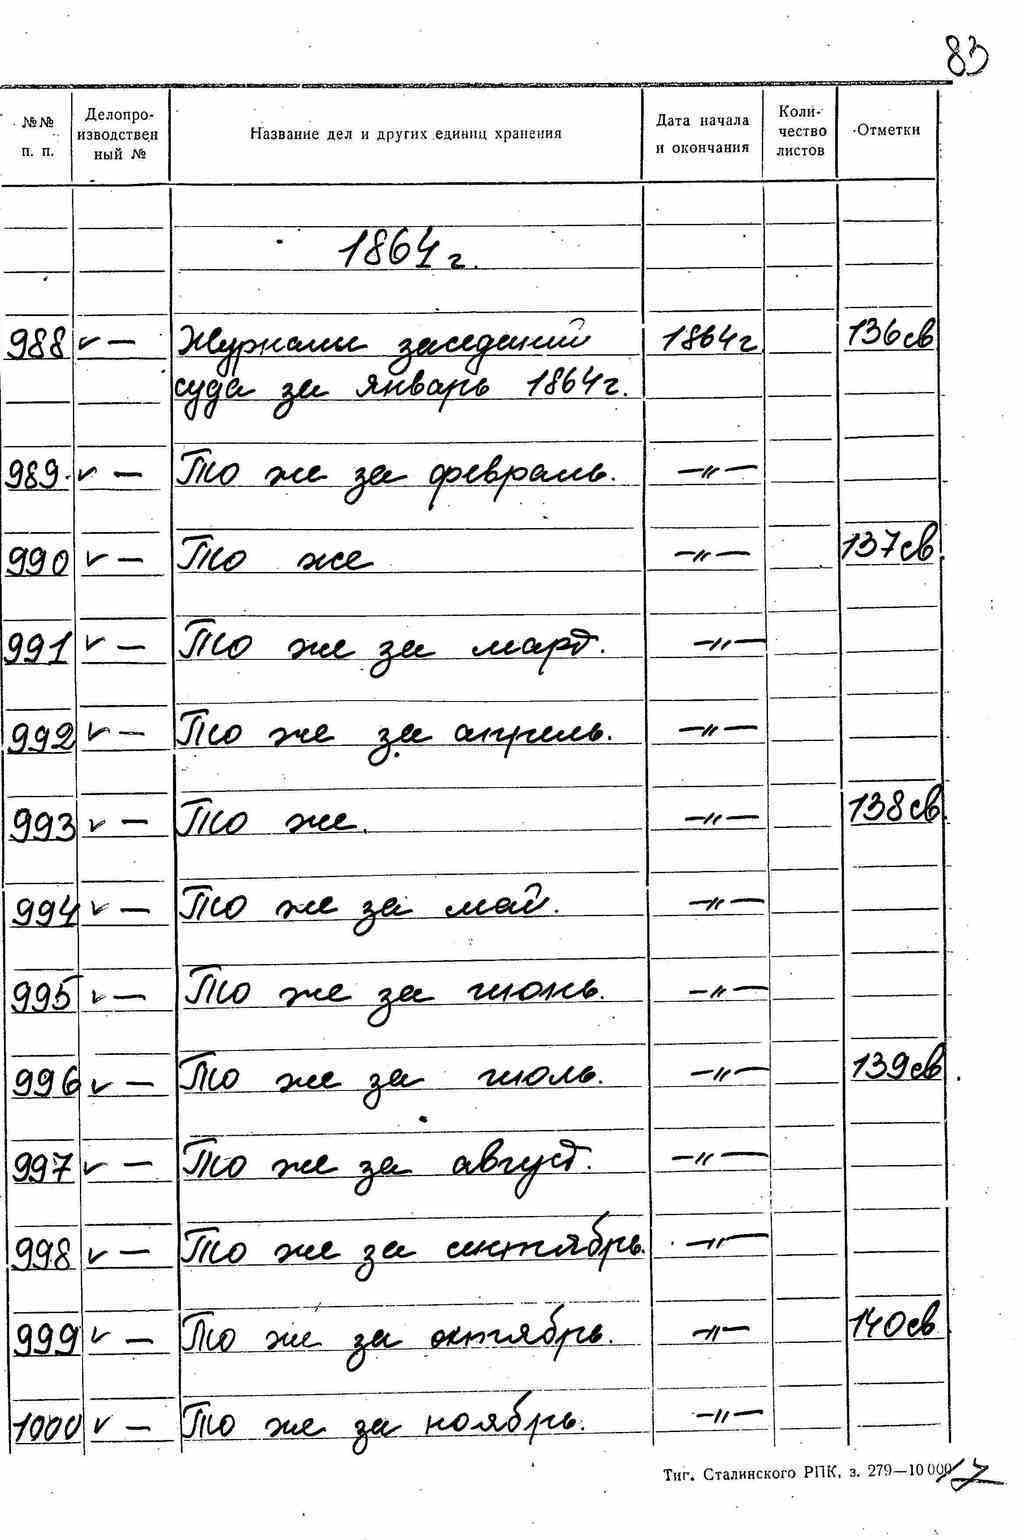 83
№№ п. п. Делопроизводствен ный № Название дел и других единиц хранения Дата начала и окончания Количество листов Отметки
1864 г.
988 ✓ — Журналы заседаний 1864 г. 136 св
суда за январь 1864 г.
989. ✓ — То же за февраль. —"—
990 ✓ — То же —"— 137 св.
991 ✓ — То же за март. —"—
992 ✓ — То же за апрель. —"—
993 ✓ — То же. —"— 138 св.
994 ✓ — То же за май. —"—
995 ✓ — То же за июнь. —"—
996 ✓ — То же за июль. —"— 139 св.
997 ✓ — То же за август. —"—
998 ✓ — То же за сентябрь. —"—
999 ✓ — То же за октябрь. —"— 140 св.
1000 ✓ — То же за ноябрь. —"—
Тиг. Сталинского РПК, з. 279—10 000